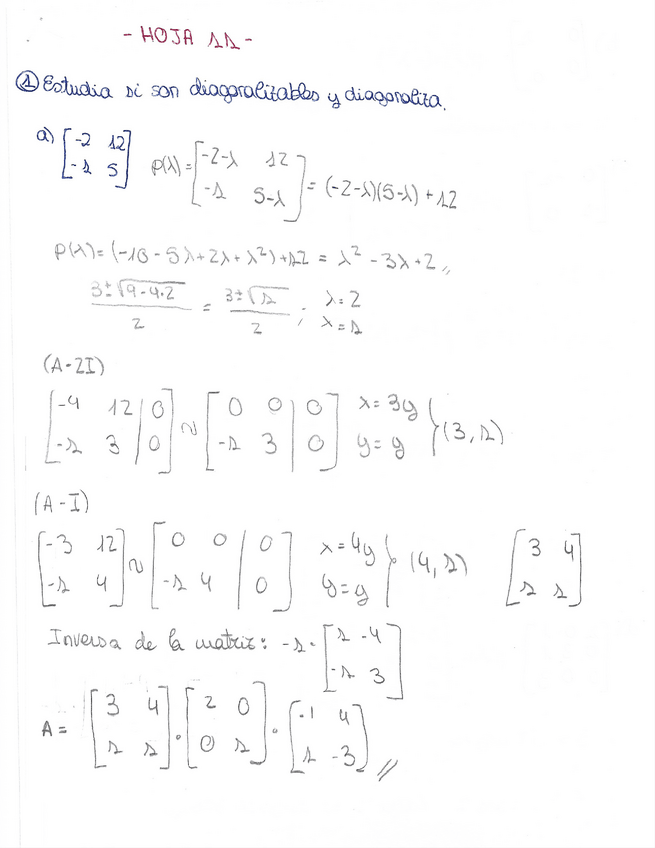 - HOJA 11 -
① Estudia si son diagonalizables y diagonaliza.
a) [-2 12; -1 5] p(λ) = [-2-λ 12; -1 5-λ] = (-2-λ)(5-λ) + 12
p(λ) = (-10 - 5λ + 2λ + λ²) + 12 = λ² - 3λ + 2 //
(3 ± √(9 - 4·2))/2 = (3 ± √1)/2 ; λ = 2 λ = 1
(A - 2I)
[-4 12 | 0; -1 3 | 0] ~ [0 0 | 0; -1 3 | 0] x = 3y y = y } (3, 1)
(A - I)
[-3 12; -1 4] ~ [0 0 | 0; -1 4 | 0] x = 4y y = y } (4, 1) [3 4; 1 1]
Inversa de la matriz: -1 · [1 -4; -1 3]
A = [3 4; 1 1] · [2 0; 0 1] · [-1 4; 1 -3] //